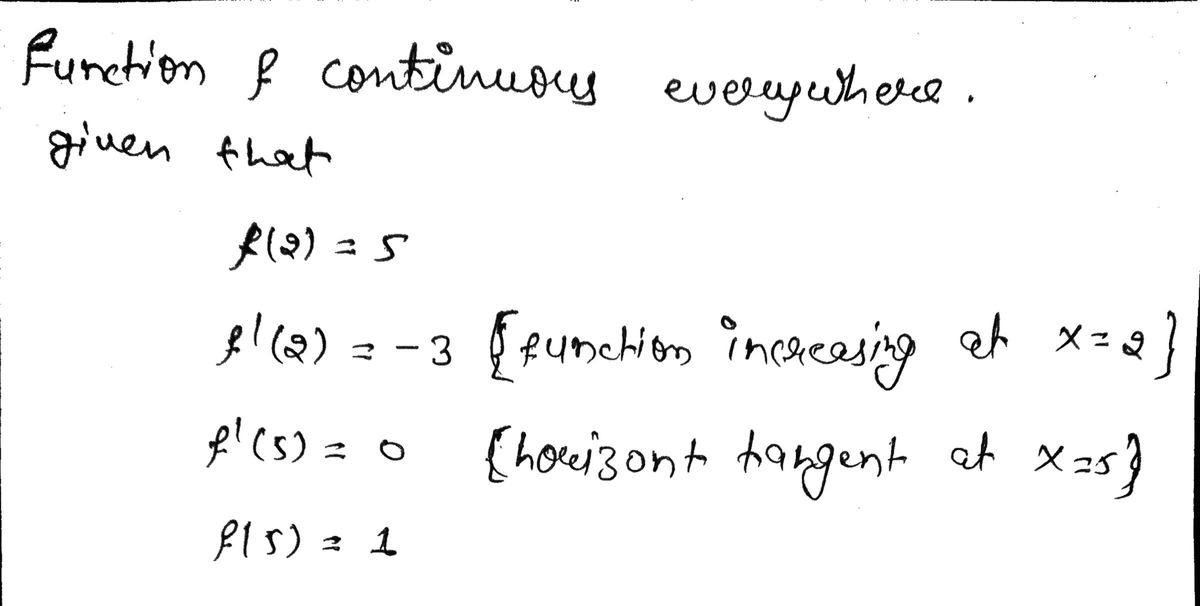 Function f continuous everywhere.
given that
f(2) = 5
f'(2) = -3 {function increasing at x=2}
f'(5) = 0 {horizont tangent at x=5}
f(5) = 1